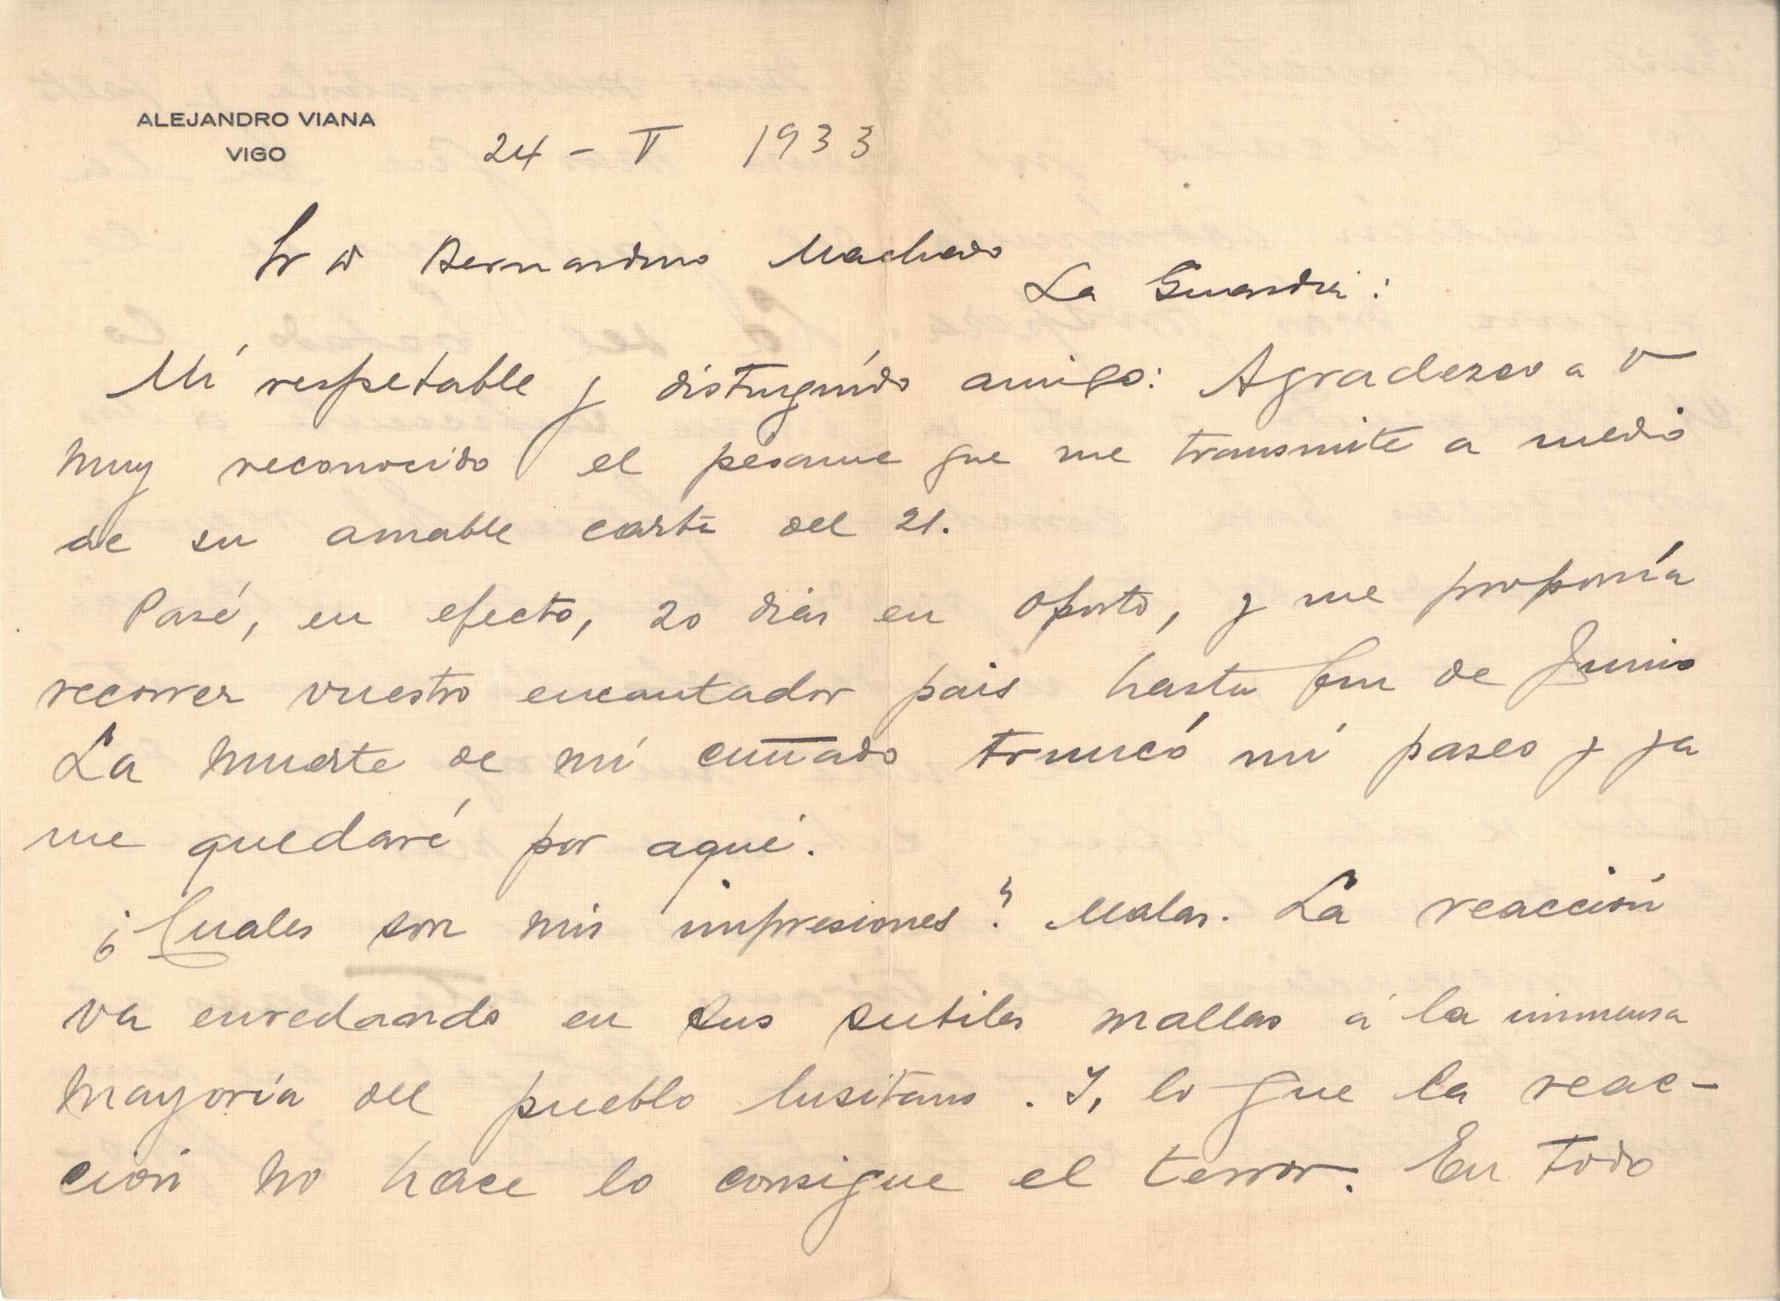 ALEJANDRO VIANA
VIGO
24 - V 1933
Sr D Bernardino Machado
La Guardia:
Mi respetable y distinguído amigo: Agradezco a V
muy reconocido el pésame que me transmite a medio
de su amable carta del 21.
Pasé, en efecto, 20 dias en Oporto, y me proponía
recorrer vuestro encantador pais hasta fin de Junio
La muerte de mi cuñado truncó mi paseo y ya
me quedaré por aqui.
¿Cuales son mis impresiones? Malas. La reacción
va enredando en sus sutiles mallas á la inmensa
mayoría del pueblo lusitano. Y, lo que la reac-
ción no hace lo consigue el terror. En todo